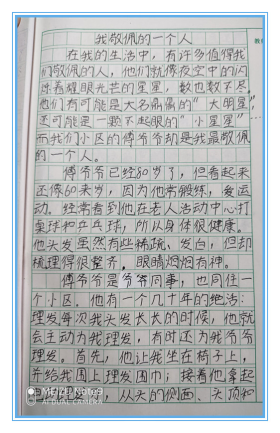 我敬佩的一个人
在我的生活中，有许多值得我
们敬佩的人，他们就像夜空中的闪
烁着耀眼光芒的星星，数也数不尽。
他们有可能是大名鼎鼎的"大明星"，
还可能是一颗不起眼的"小星星"……
而我们小区的傅爷爷却是我最敬佩
的一个人。
傅爷爷已经80岁了，但看起来
还像60来岁，因为他常锻炼，爱运
动。经常看到他在老人活动中心打
桌球和乒乓球，所以身体很健康。
他头发虽然有些稀疏、发白，但却
梳理得很整齐，眼睛炯炯有神。
傅爷爷是爷爷同事，也同住一
个小区。他有一个几十年的绝活：
理发每次我头发长长的时候，他就
会主动为我理发，有时还为我爷爷
理发。首先，他让我坐在椅子上，
并给我围上理发围巾；接着他拿起
从头的侧面、头顶和